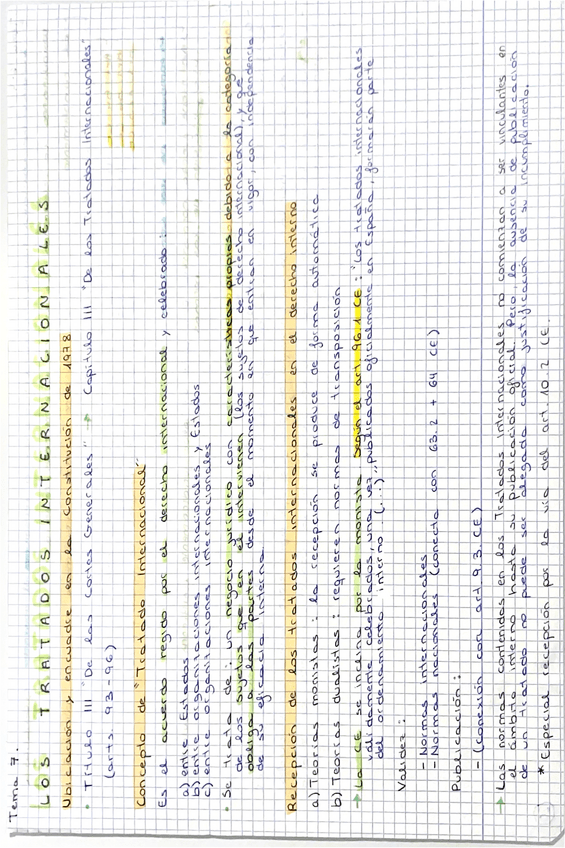 Tema 7.
LOS TRATADOS INTERNACIONALES
Ubicación y encuadre en la Constitución de 1978
• Título III "De las Cortes Generales" → Capítulo III "De los Tratados Internacionales"
(arts. 93-96)
Concepto de "Tratado Internacional"
Es el acuerdo regido por el derecho internacional y celebrado:
a) entre Estados
b) entre organizaciones internacionales y Estados
c) entre organizaciones internacionales
• Se trata de: un negocio jurídico con características propias debido a la categoría
de los sujetos que en él intervienen (los sujetos de derecho internacional), y que
obliga a las partes desde el momento en que entran en vigor, con independencia
de su eficacia interna.
Recepción de los tratados internacionales en el derecho interno
a) Teorías monistas: la recepción se produce de forma automática
b) Teorías dualistas: requieren normas de transposición
→ La CE se inclina por la monista según el art. 96.1 CE: "Los tratados internacionales
válidamente celebrados, una vez publicados oficialmente en España, formarán parte
del ordenamiento interno. (...)"
Validez:
- Normas internacionales
- Normas nacionales (conecta con 63.2 + 64 CE)
Publicación:
- (conexión con art. 9.3 CE)
→ Las normas contenidas en los Tratados internacionales no comienzan a ser vinculantes en
el ámbito interno hasta su publicación oficial. Pero, la ausencia de publicación
de un tratado no puede ser alegada como justificación de su incumplimiento.
* Especial recepción por la vía del art. 10.2 CE.